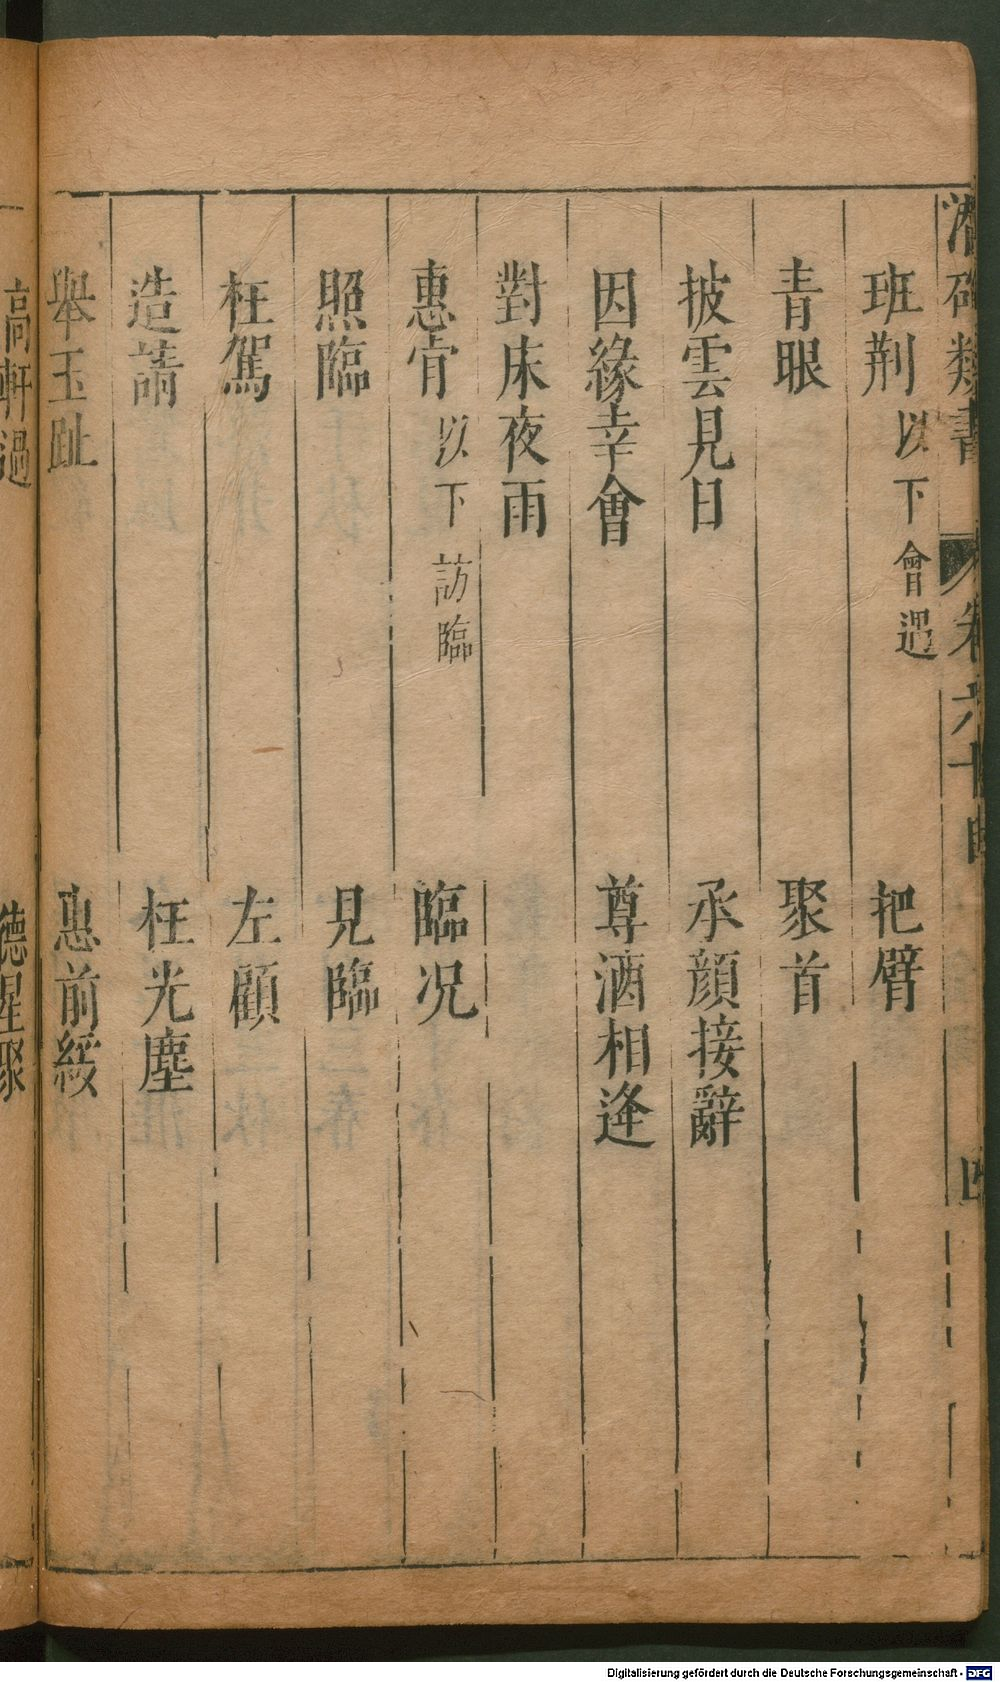 潛確類書 卷六十四 四
班荆以下會遇 把臂
青眼 聚首
披雲見日 承顔接辭
因緣幸會 尊酒相逢
對床夜雨
惠肯以下訪臨 臨况
照臨 見臨
枉駕 左顧
造請 枉光塵
舉玉趾 惠前綏
高軒過 德星聚
Digitalisierung gefördert durch die Deutsche Forschungsgemeinschaft - DFG